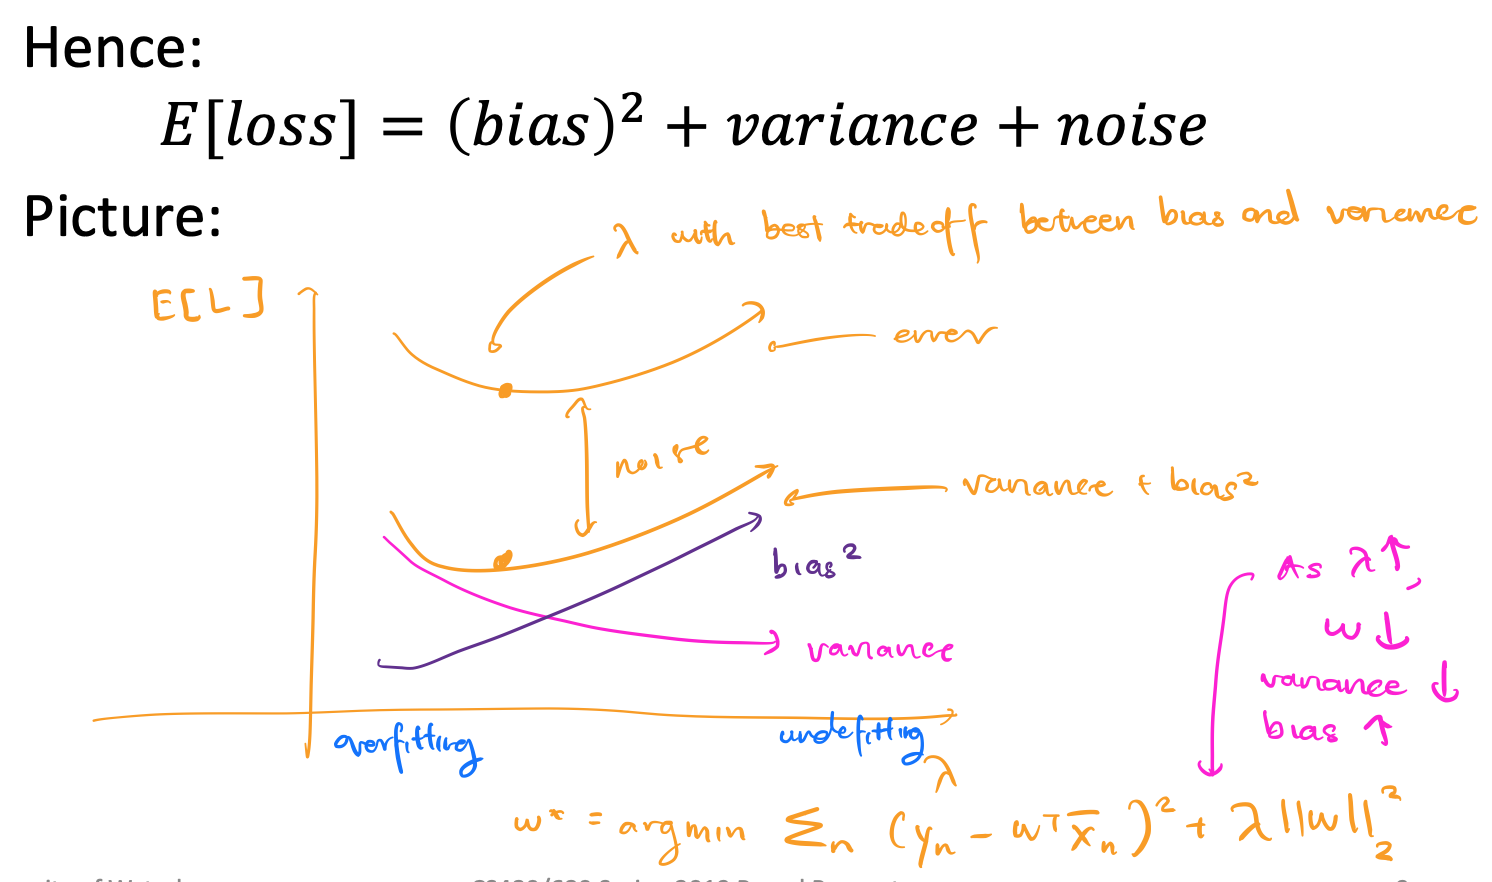 Hence:
E[loss] = (bias)² + variance + noise
Picture:
λ with best tradeoff between bias and variance
E[L]
error
noise
variance + bias²
bias²
As λ↑,
w ↓
variance ↓
variance
bias ↑
overfitting
undefitting
λ
w* = argmin Σn (yn - wᵀx̄n)² + λ||w||₂²